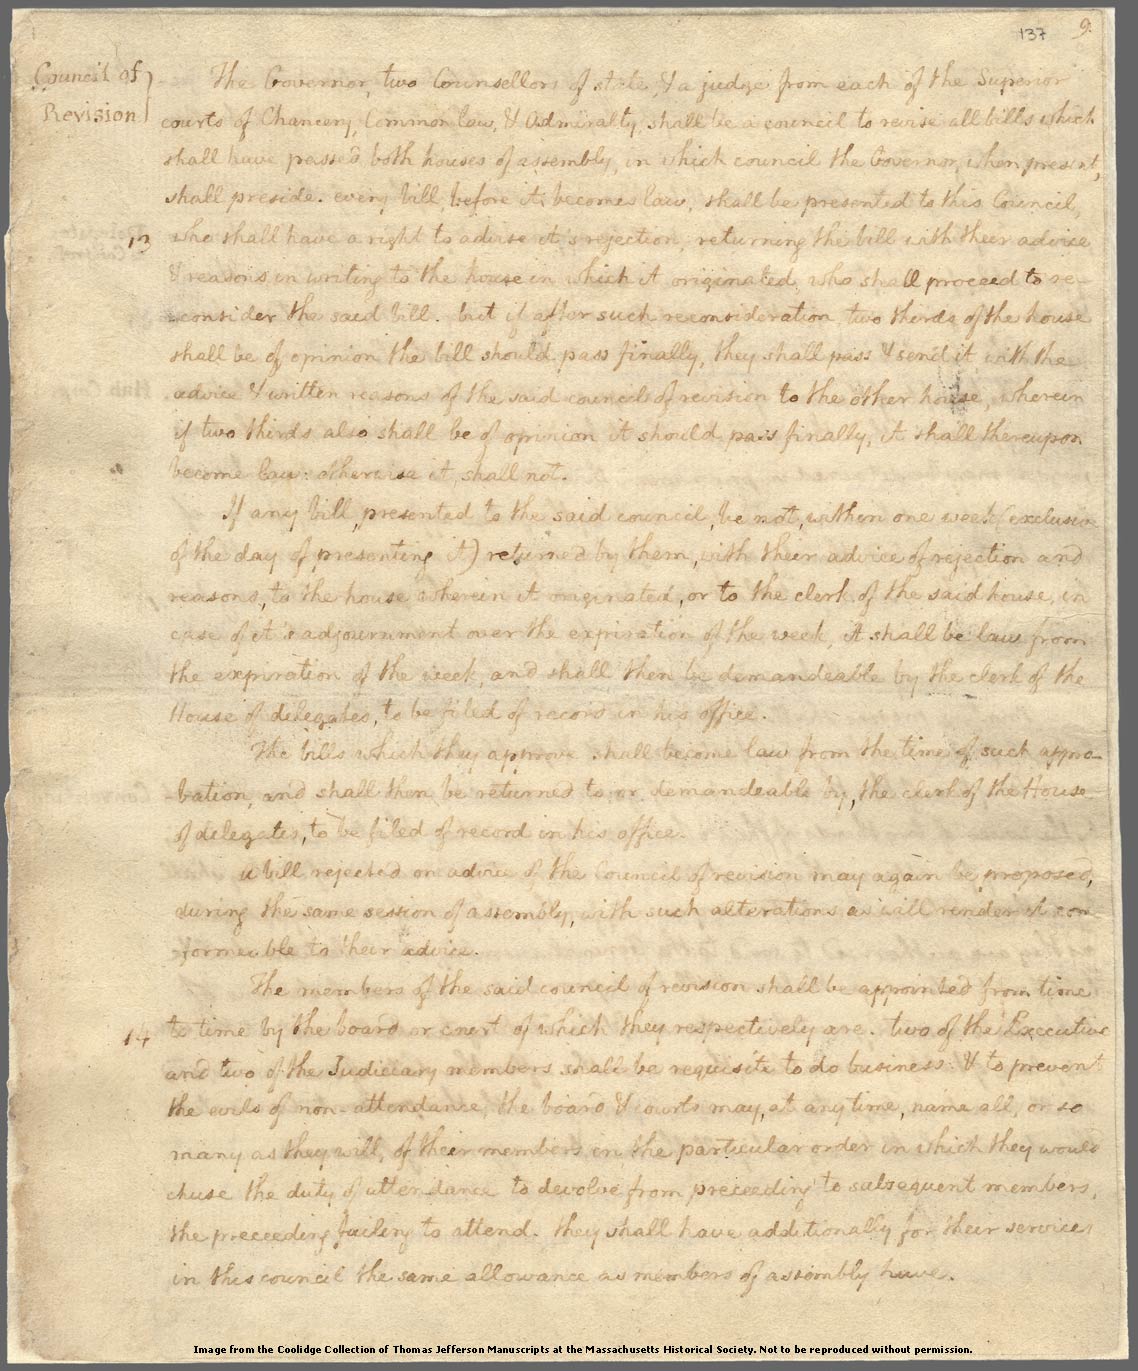 137 9.
Council of
Revision
The Governor, two Counsellors of state, & a judge from each of the Superior
courts of Chancery, Common law, & Admiralty, shall be a council to revise all bills which
shall have passed both houses of assembly, in which council the Governor, when present,
shall preside. every bill, before it becomes law, shall be presented to this Council,
13 who shall have a right to advise it's rejection, returning the bill with their advice
& reasons in writing to the house in which it originated, who shall proceed to re-
-consider the said bill. but if after such reconsideration, two thirds of the house
shall be of opinion the bill should pass finally, they shall pass & send it with the
advice & written reasons of the said council of revision to the other house, wherein
if two thirds also shall be of opinion it should pass finally, it shall thereupon
become law: otherwise it shall not.
If any bill, presented to the said council, be not, within one week (exclusive
of the day of presenting it) returned by them, with their advice of rejection and
reasons, to the house wherein it originated, or to the clerk of the said house, in
case of it's adjournment over the expiration of the week, it shall be law from
the expiration of the week, and shall then be demandeable by the clerk of the
House of delegates, to be filed of record in his office.
The bills which they approve shall become law from the time of such appro-
-bation, and shall then be returned to, or demandeable by, the clerk of the House
of delegates, to be filed of record in his office.
a bill rejected on advice of the Council of revision may again be proposed,
during the same session of assembly, with such alterations as will render it con
-formeable to their advice.
The members of the said council of revision shall be appointed from time
14 to time by the board or court of which they respectively are. two of the Executive
and two of the Judiciary members shall be requisite to do business: & to prevent
the evils of non-attendance, the board & courts may, at any time, name all, or so
many as they will, of their members in the particular order in which they would
chuse the duty of attendance to devolve from preceeding to subsequent members,
the preceeding failing to attend. they shall have additionally for their services
in this council the same allowance as members of assembly have.
Image from the Coolidge Collection of Thomas Jefferson Manuscripts at the Massachusetts Historical Society. Not to be reproduced without permission.